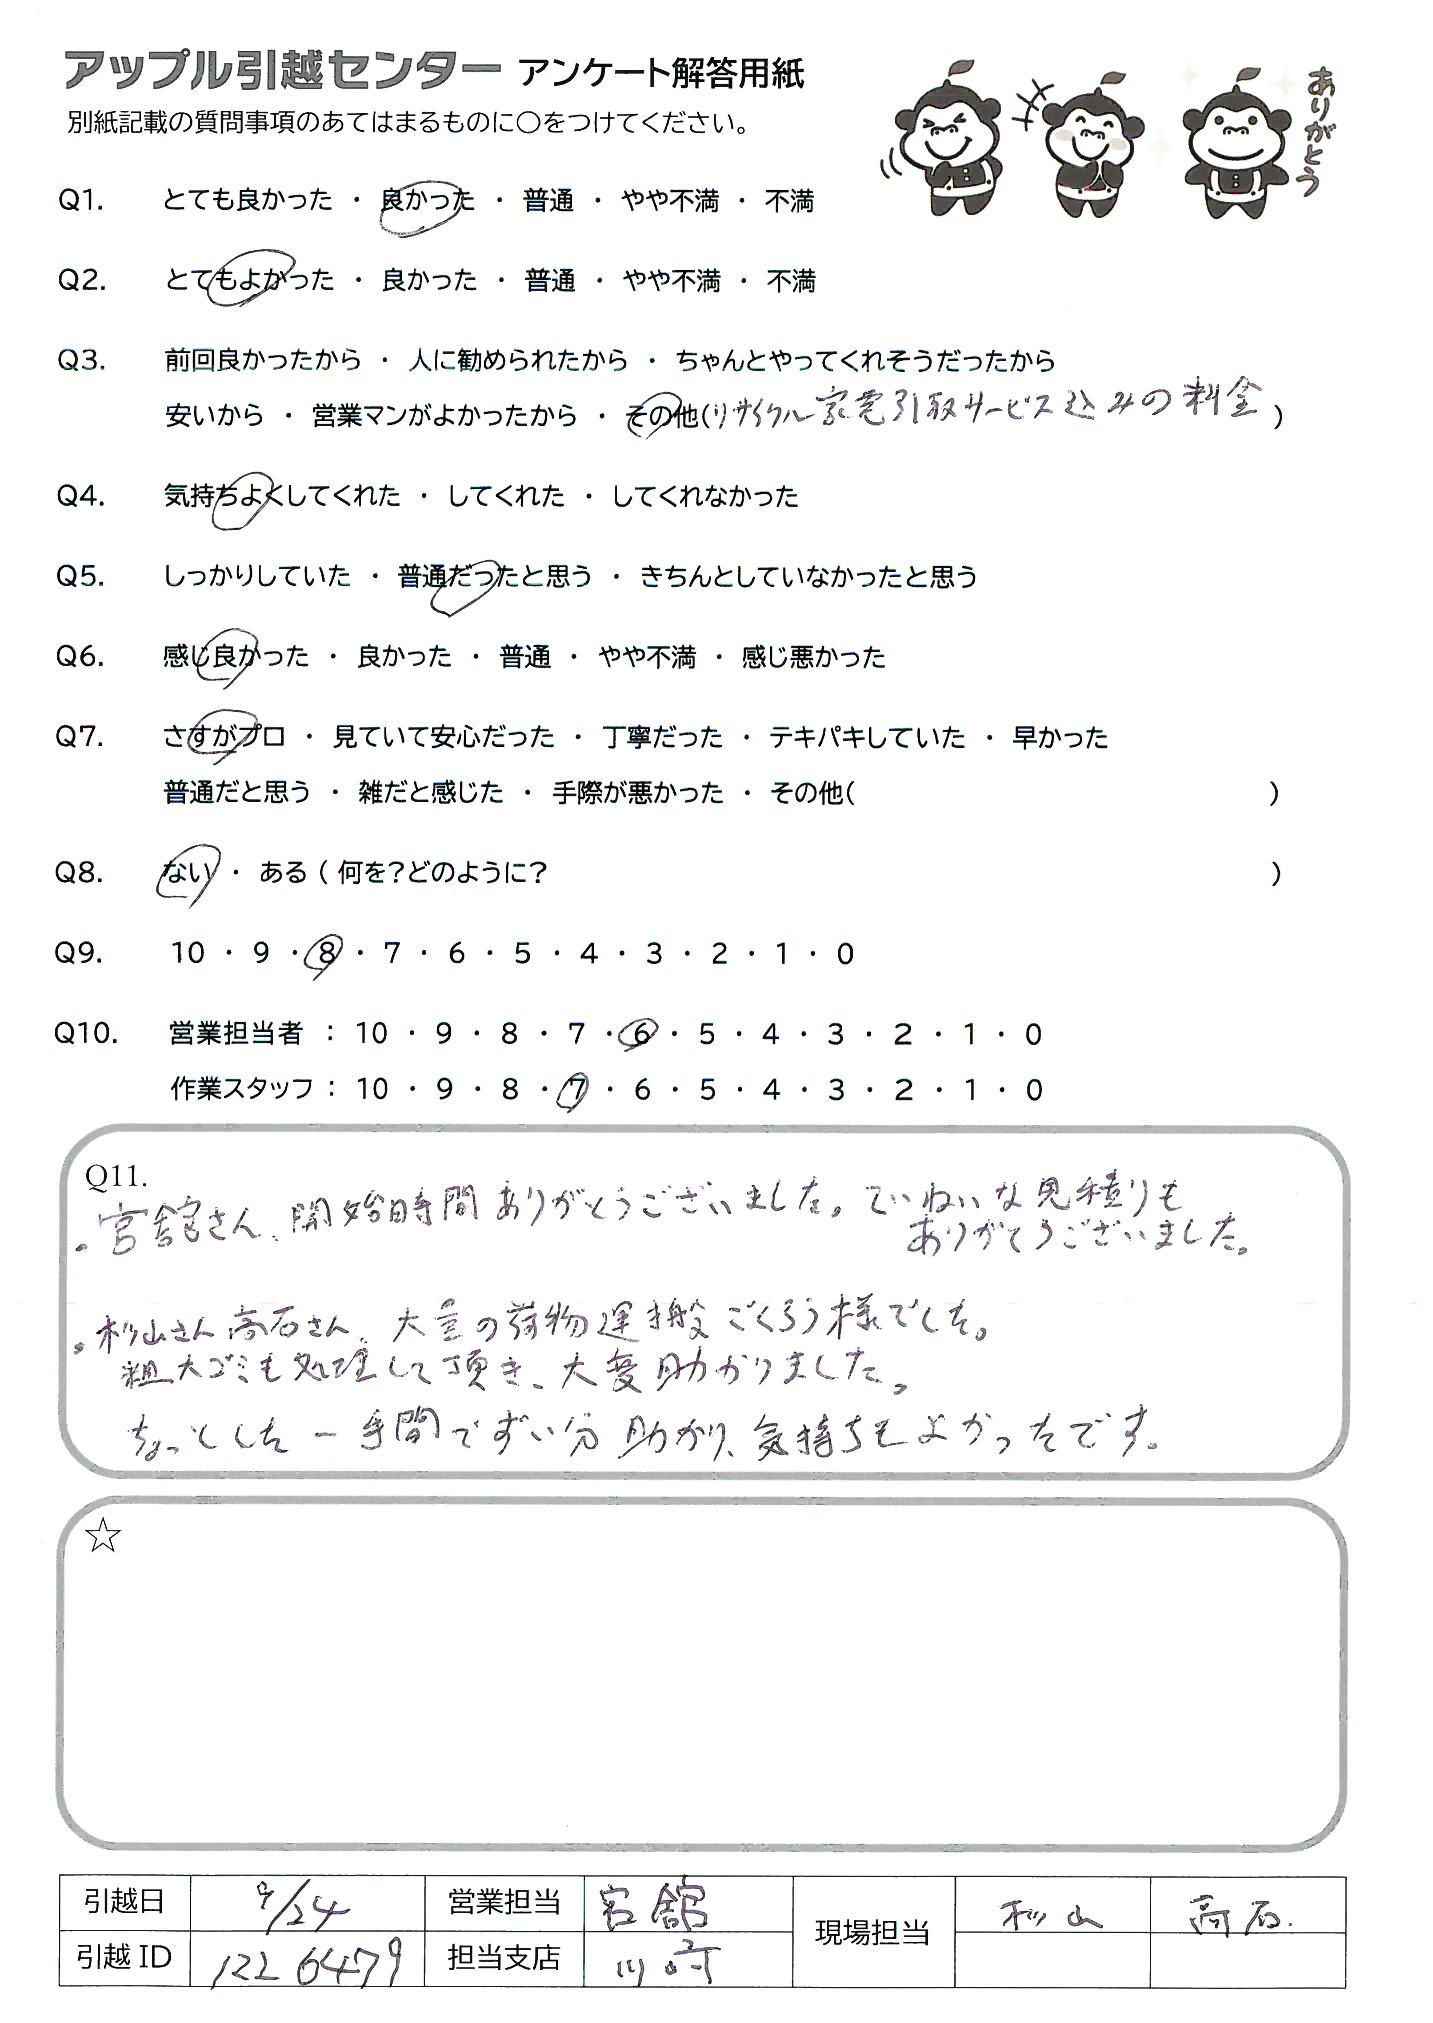 アップル引越センター アンケート解答用紙
別紙記載の質問事項のあてはまるものに○をつけてください。
ありがとう
Q1. とても良かった ・ 良かった ・ 普通 ・ やや不満 ・ 不満
Q2. とてもよかった ・ 良かった ・ 普通 ・ やや不満 ・ 不満
Q3. 前回良かったから ・ 人に勧められたから ・ ちゃんとやってくれそうだったから
安いから ・ 営業マンがよかったから ・ その他(リサイクル家電引取サービス込みの料金 )
Q4. 気持ちよくしてくれた ・ してくれた ・ してくれなかった
Q5. しっかりしていた ・ 普通だったと思う ・ きちんとしていなかったと思う
Q6. 感じ良かった ・ 良かった ・ 普通 ・ やや不満 ・ 感じ悪かった
Q7. さすがプロ ・ 見ていて安心だった ・ 丁寧だった ・ テキパキしていた ・ 早かった
普通だと思う ・ 雑だと感じた ・ 手際が悪かった ・ その他( )
Q8. ない ・ ある ( 何を?どのように? )
Q9. 10 ・ 9 ・ 8 ・ 7 ・ 6 ・ 5 ・ 4 ・ 3 ・ 2 ・ 1 ・ 0
Q10. 営業担当者 : 10 ・ 9 ・ 8 ・ 7 ・ 6 ・ 5 ・ 4 ・ 3 ・ 2 ・ 1 ・ 0
作業スタッフ : 10 ・ 9 ・ 8 ・ 7 ・ 6 ・ 5 ・ 4 ・ 3 ・ 2 ・ 1 ・ 0
Q11.
・宮舘さん、開始時間ありがとうございました。ていねいな見積りも
ありがとうございました。
・杉山さん高石さん、大量の荷物運搬ごくろう様でした。
粗大ゴミも処理して頂き、大変助かりました。
ちょっとした一手間でずい分助かり、気持ちもよかったです。
☆
引越日 9/24 営業担当 宮舘 現場担当 杉山 高石.
引越ID 1226479 担当支店 川崎